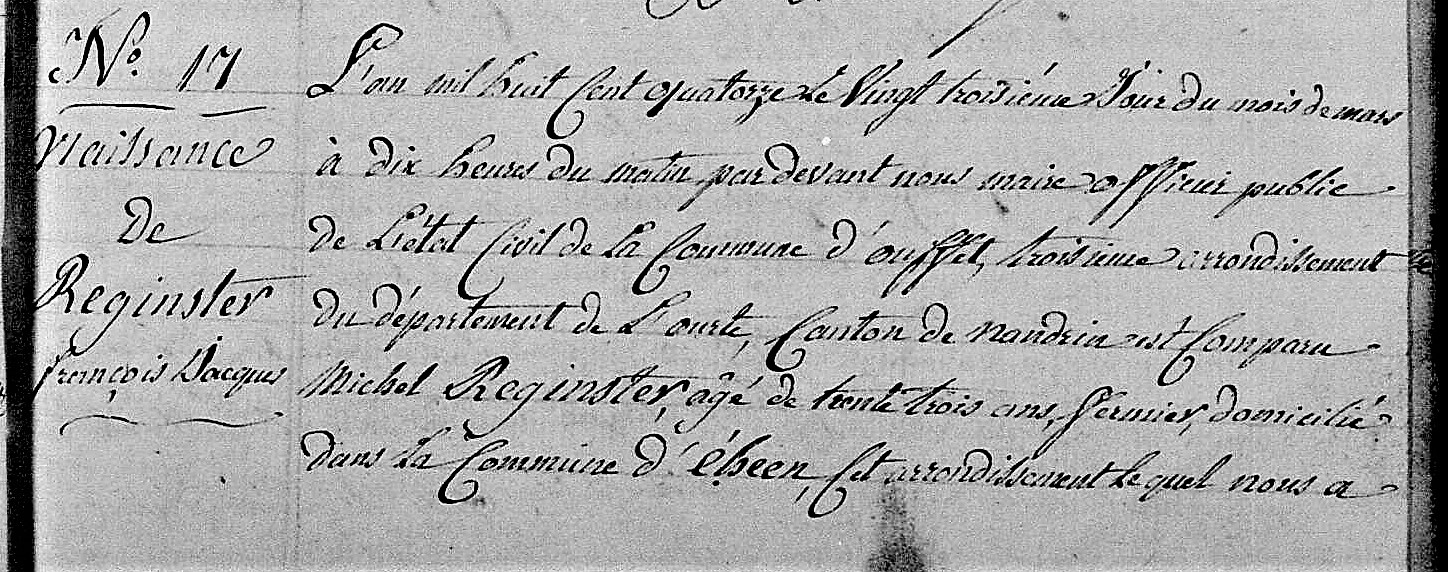 N.o 17
Naissance
De
Reginster
françois Jacques
L'an mil huit Cent quatorze Le Vingt troisiéme Jour du mois de mars
à dix heures du matin pardevant nous maire officier public
de L'état Civil de La Commune d'ouffet, troisieme arrondissement
du département de L'ourte, Canton de nandrin est Comparu
Michel Reginster, âgé de trente trois ans, fermier, domicilié
dans La Commune d'éheen, Cet arrondissement Lequel nous a